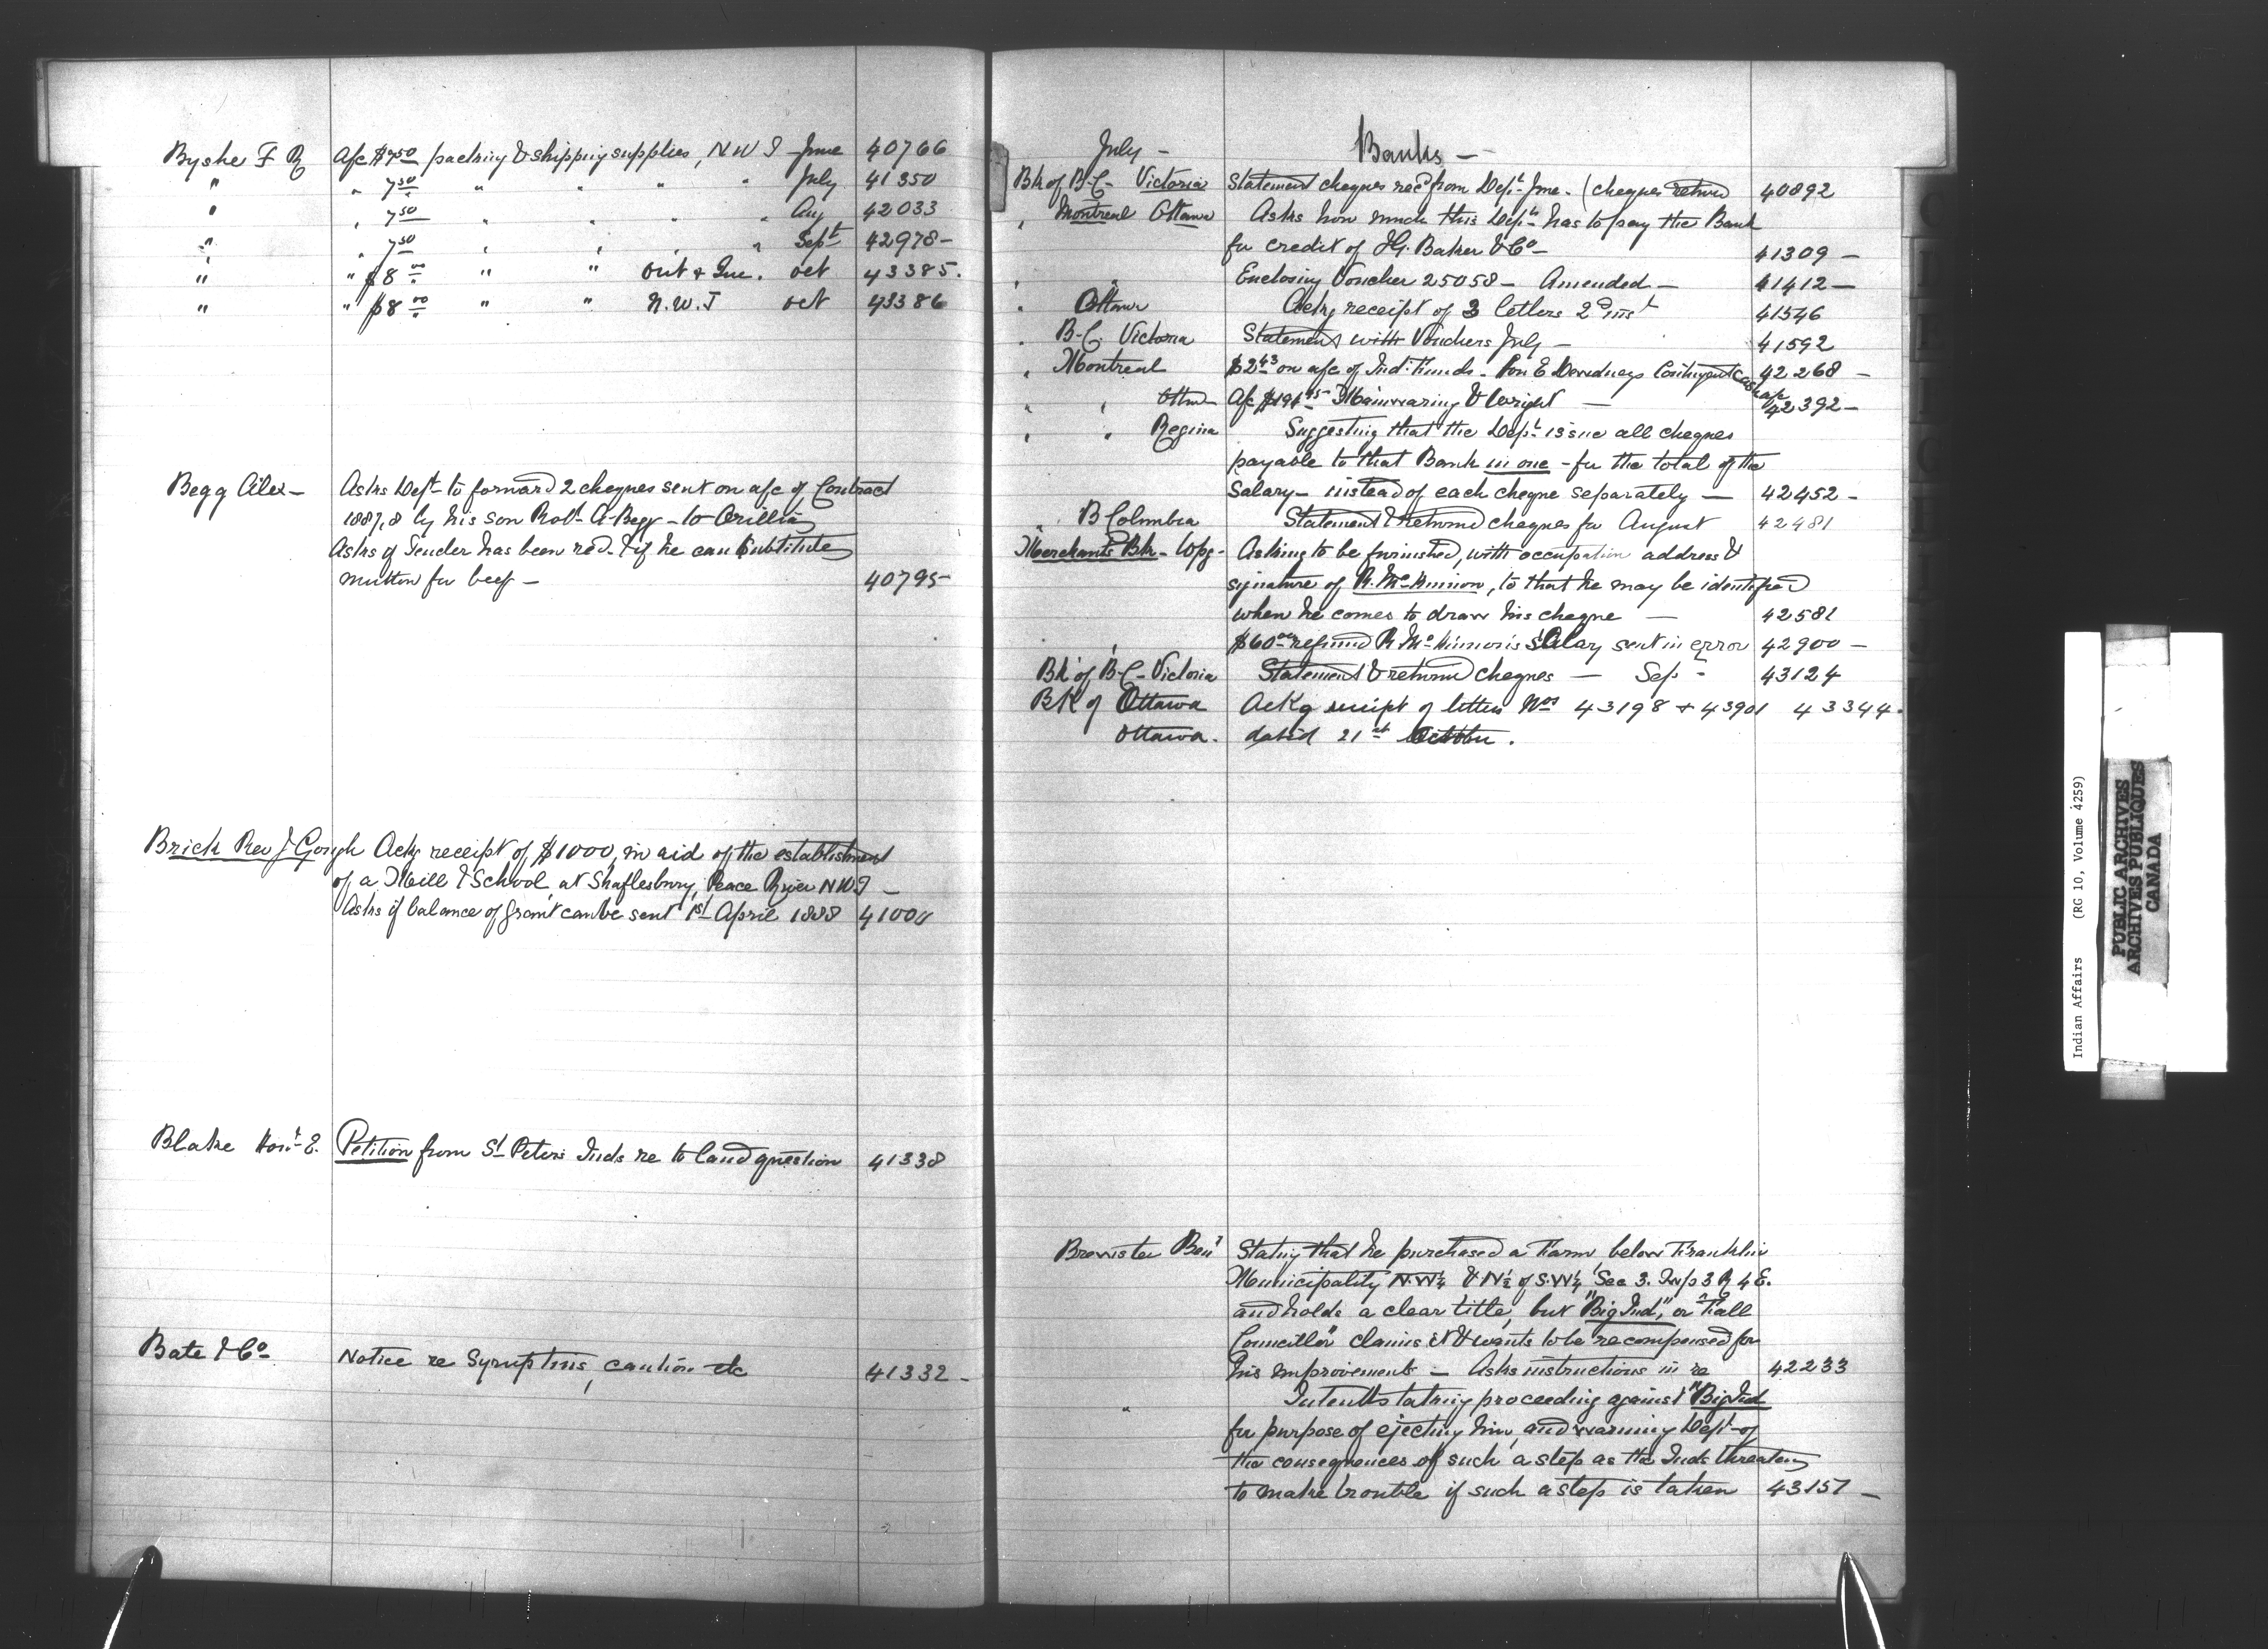 Byshe F R A/c $7.50 packing & shipping supplies, N W T June 40766
" " 7.50 " " " " July 41350
" " 7.50 " " " " Aug 42033
" " 7.50 " " " " Sept 42978 –
" " $8.00 " " Ont & Que. oct 43385.
" " $8.00 " " N.W.T oct 43386
Begg Alex – Asks Dept to forward 2 cheques sent on a/c of Contract
1887/8 by his son Robt A Begg – to Orillia
Asks if Tender has been recd. & if he can Substitute
mutton for beef – 40795
Brick Rev J Gough Ackg receipt of $1000, in aid of the establishment
of a Mill & School at Shaftesbury, Peace River N W T –
Asks if balance of grant can be sent 1st April 1888 41000
Blake Hon. E. Petition from St Peters Inds re to land question 41338
Bate & Co Notice re Syrup tins, caution etc 41332 –
July – Banks –
Bk of B–C– Victoria Statement cheques recd from Dept June. (cheques returnd 40892
" Montreal Ottawa Asks how much this Dept has to pay the Bank
for credit of I.G. Baker & Co – 41309 –
" Enclosing Voucher 25058 – Amended – 41412 –
" Ottawa Ackg receipt of 3 letters 2nd inst 41546
" B–C. Victoria Statement with Vouchers July – 41592
" Montreal $2.43 on a/c of Ind: Funds – Hon E Dewdneys Contingent Cash a/c 42268 –
" " Ottawa A/c Mainwaring & Wright – 42392 –
" " Regina Suggesting that the Dept issue all cheques
payable to that Bank in one – for the total of the
Salary – instead of each cheque separately – 42452 –
" B Columbia Statement & returnd cheques for August 42481
Merchants Bk – Wpg – Asking to be furnished, with occupation address &
signature of R. McKinnon, so that he may be identified
when he comes to draw his cheque – 42581
" " $60.00 refund R McKinnon's Salary sent in error 42900 –
Bk of B–C– Victoria Statement & returnd cheques – Sep – 43124
BK of Ottawa AcKg receipt of letters Nos 43198 + 43901 43344.
Ottawa. datid 21st October.
Brewster Ben Stating that he purchased a Farm below Franklin
Municipality N.W¼ & N½ of S.W¼ Sec 3. Twp 3 R 4 E.
and holds a clear title, but "Big Ind," or "Tall
Councillor" claims it & wants to be recompensed for
his improvements – Asks instructions in re 42233
" Intends taking proceeding against "Big Ind
for purpose of ejecting him, and warning Dept of
the consequences of such a step as the Inds threaten
to make trouble if such a step is taken 43157 –
Indian Affairs (RG 10, Volume 4259)
PUBLIC ARCHIVES
ARCHIVES PUBLIQUES
CANADA